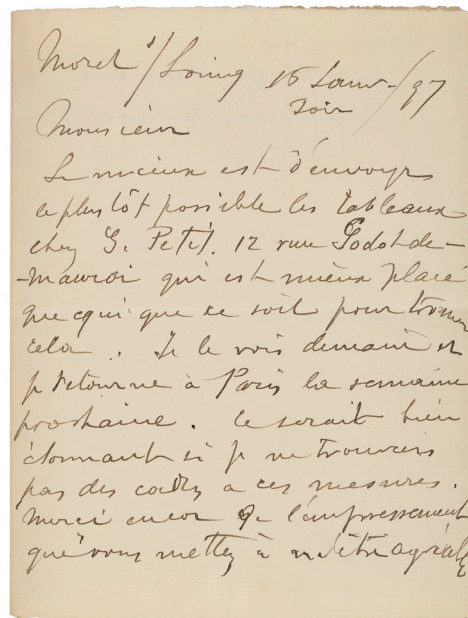 Moret s/Loing 16 Janv-/97
Soir
Monsieur
Le mieux est d'envoyer
le plus tôt possible les tableaux
chez G. Petit. 12 rue Godot-de-
-mauroi qui est mieux placé
que qui que ce soit pour trouver
cela. Je le vois demain et
je retourne à Paris la semaine
prochaine. Ce serait bien
étonnant si je ne trouvais
pas des cadres à ces mesures.
Merci encor de l'empressement
que vous mettez à m'être agréable